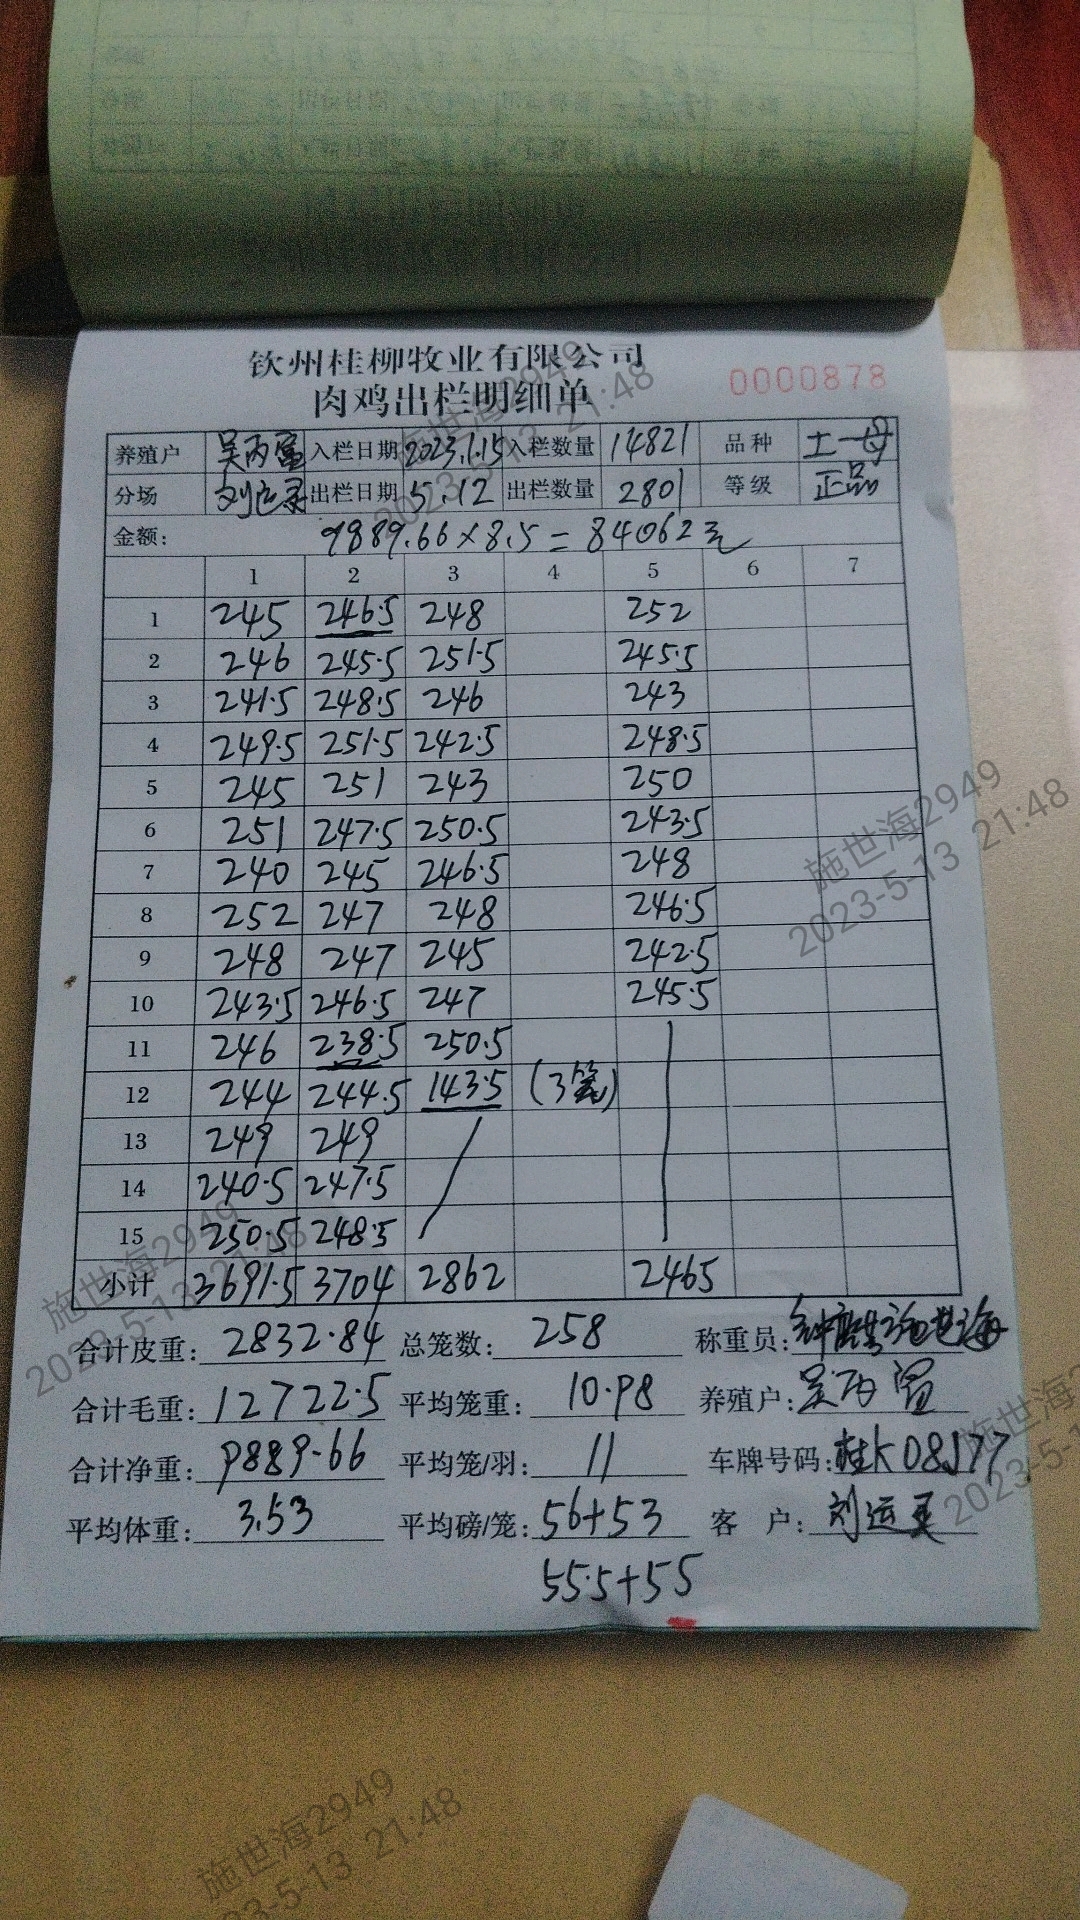 钦州桂柳牧业有限公司
肉鸡出栏明细单
0000878
养殖户 吴丙富 入栏日期 2023.1.15 入栏数量 14821 品种 土一母
分场 出栏日期 5.12 出栏数量 2801 等级 正品
金额: 9889.66×8.5=84062元
1 2 3 4 5 6 7
1 245 246.5 248 252
2 246 245.5 251.5 245.5
3 241.5 248.5 246 243
4 249.5 251.5 242.5 248.5
5 245 251 243 250
6 251 247.5 250.5 243.5
7 240 245 246.5 248
8 252 247 248 246.5
9 248 247 245 242.5
10 243.5 246.5 247 245.5
11 246 238.5 250.5
12 244 244.5 143.5 (3笼)
13 249 249
14 240.5 247.5
15 250.5 248.5
小计 3691.5 3704 2862 2465
合计皮重: 2832.84 总笼数: 258 称重员: 施世海
合计毛重: 12722.5 平均笼重: 10.98 养殖户: 吴丙富
合计净重: 9889.66 平均笼/羽: 11 车牌号码: 桂K08J77
平均体重: 3.53 平均磅/笼: 56+53 客户: 刘运
55.5+55
施世海2949
2023-5-13 21:48
施世海2949
2023-5-13 21:48
施世海2949
2023-5-13 21:48
施世海
2023-5-1
施世海2949
23-5-13 21:48